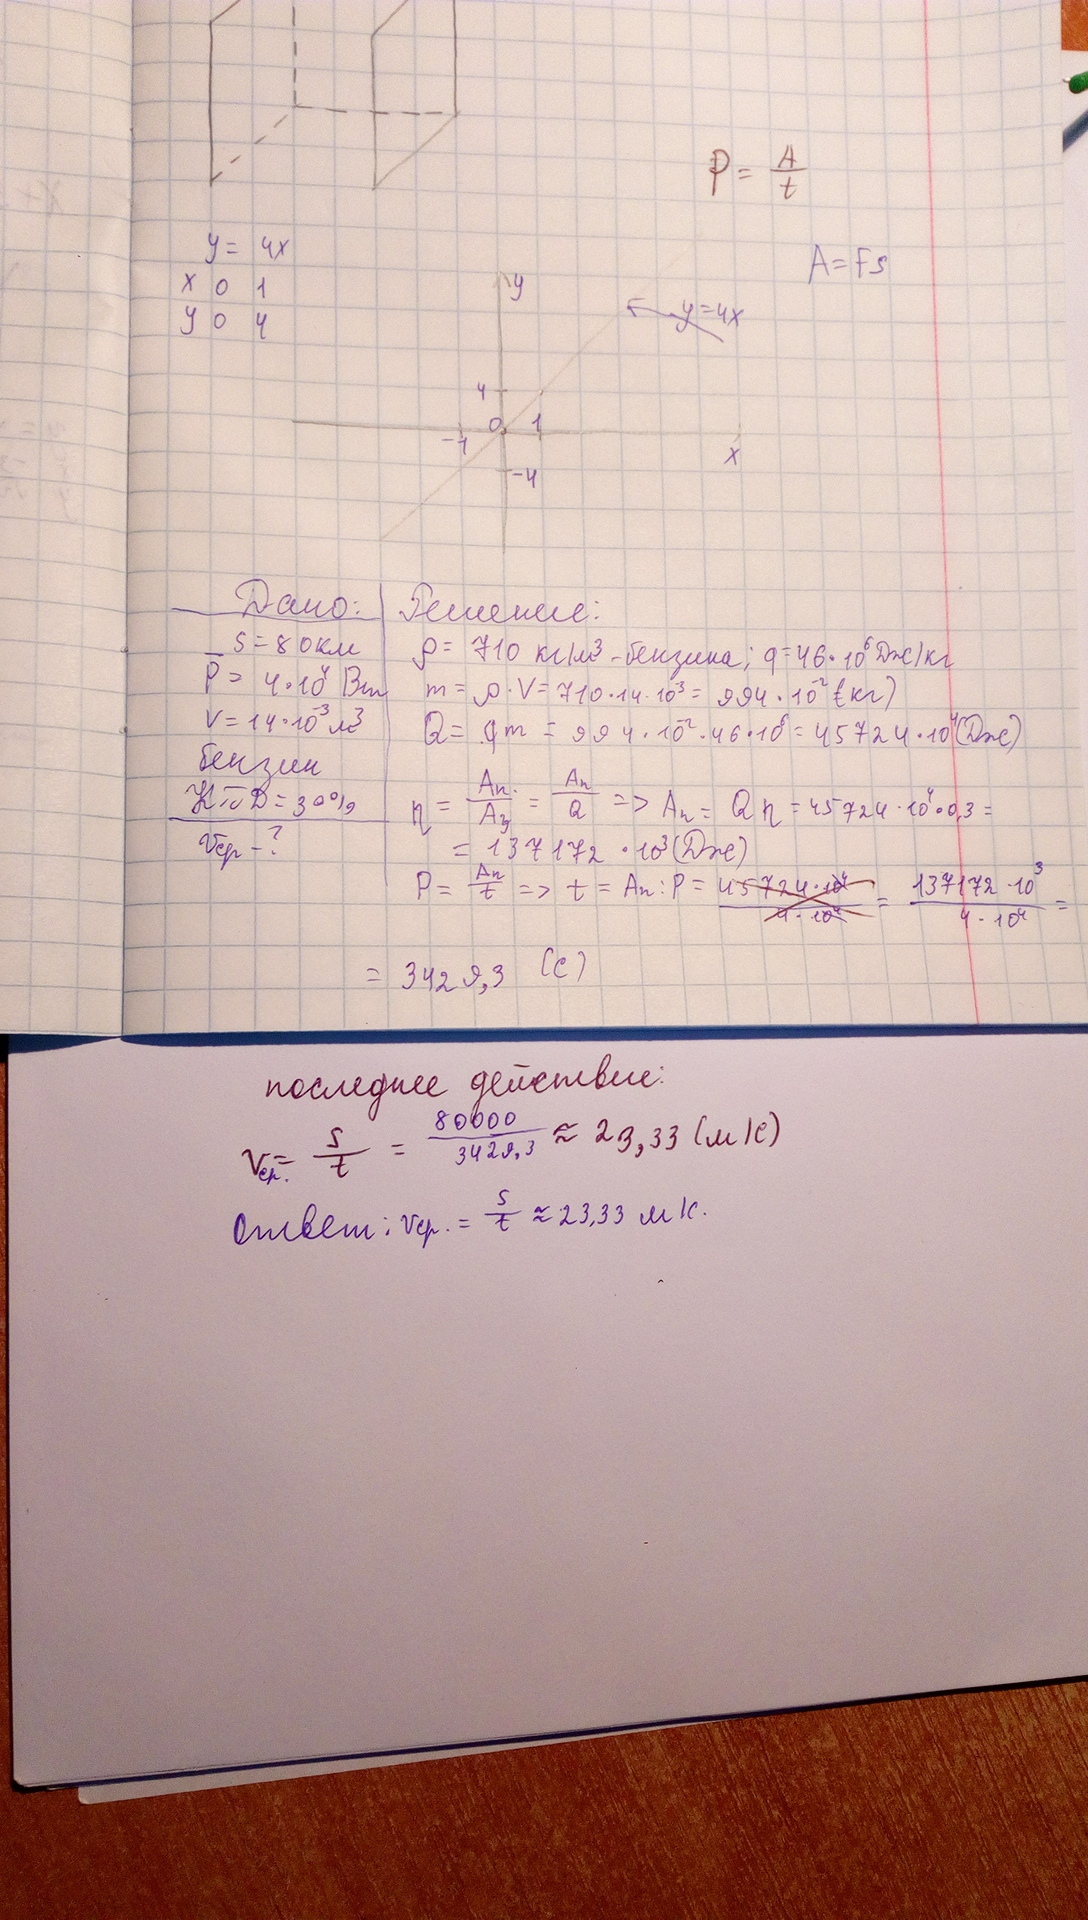 P = A/t
A = Fs
y = 4x
x 0 1
y 0 4
y
y=4x
4
0 1
-1
x
-4
Дано:
s = 80км
P = 4·10⁴ Вт
V = 14·10⁻³ м³
бензин
КПД = 30%
Vср - ?
Решение:
ρ = 710 кг/м³ - бензина; q = 46·10⁶ Дж/кг
m = ρ·V = 710·14·10⁻³ = 994·10⁻² (кг)
Q = qm = 994·10⁻²·46·10⁶ = 45724·10⁴ (Дж)
η = Aп/Aз = Aп/Q => Aп = Qη = 45724·10⁴·0,3 =
= 137172·10³ (Дж)
P = Aп/t => t = Aп : P = 45724·10⁴/4·10⁴ = 137172·10³/4·10⁴ =
= 3429,3 (с)
последнее действие:
Vср. = s/t = 80000/3429,3 ≈ 23,33 (м/с)
Ответ: Vср. = s/t ≈ 23,33 м/с.